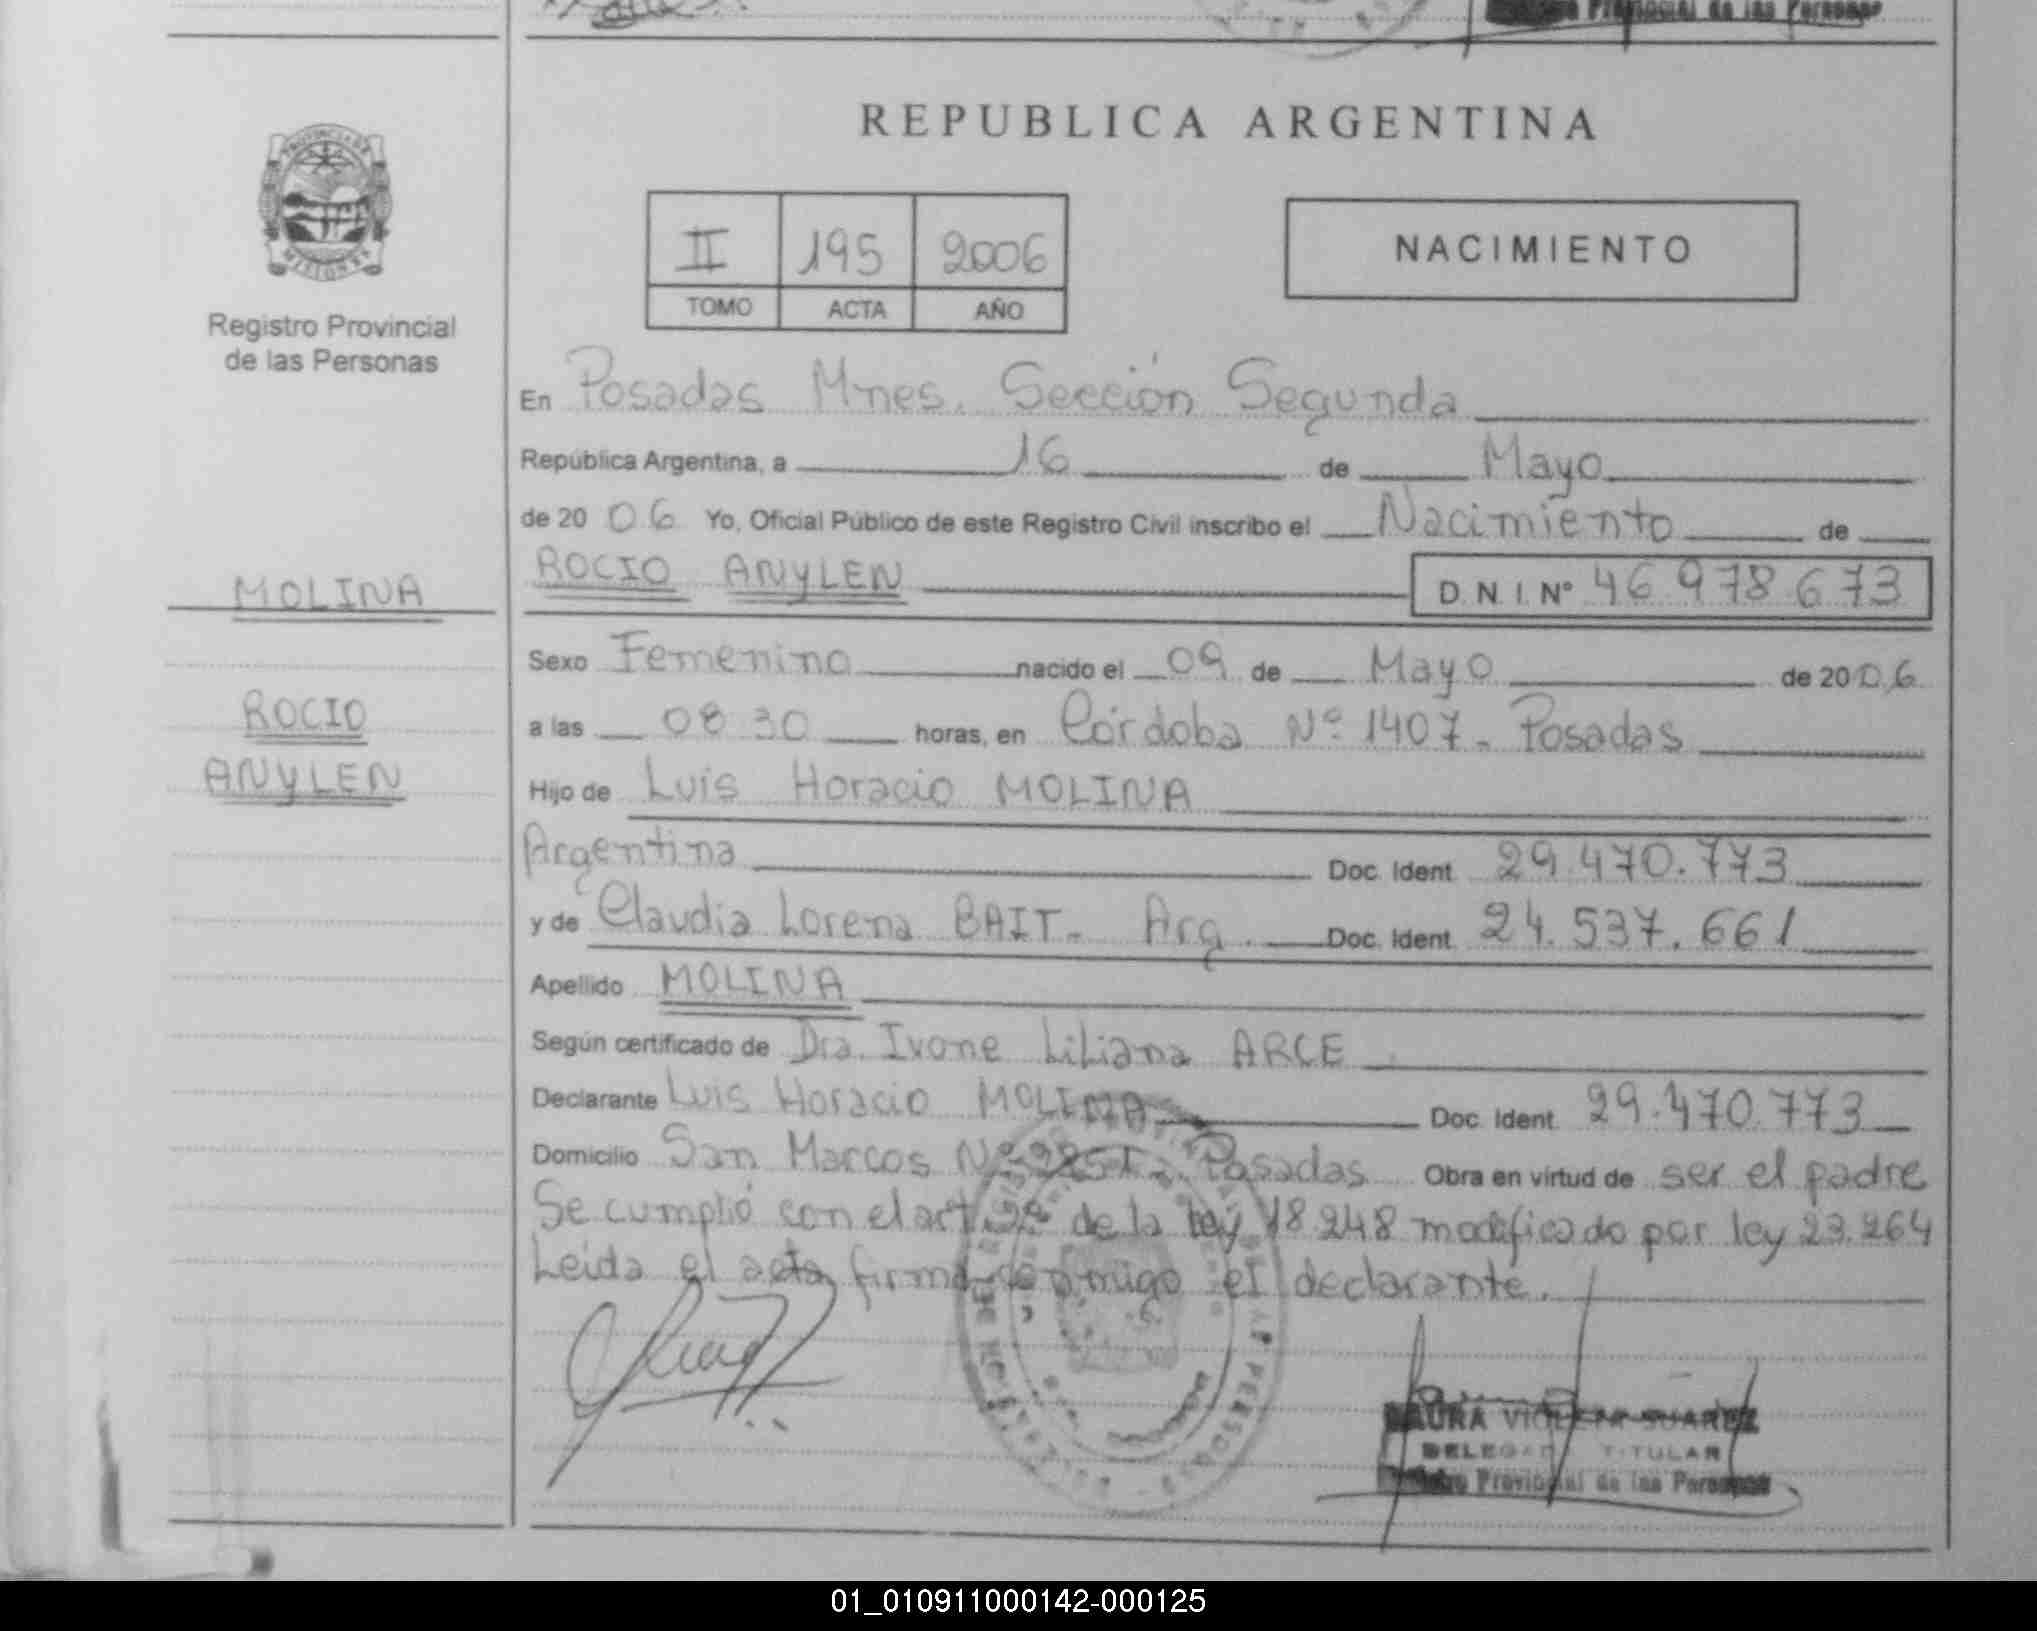 REPUBLICA ARGENTINA
PROVINCIA DE
MISIONES
Registro Provincial
de las Personas
II 195 2006
TOMO ACTA AÑO
NACIMIENTO
En Posadas Mnes. Sección Segunda
República Argentina, a 16 de Mayo
de 2006 Yo, Oficial Público de este Registro Civil inscribo el Nacimiento de
MOLINA
ROCIO ANYLEN D.N.I. Nº 46 978 673
Sexo Femenino nacido el 09 de Mayo de 2006
ROCIO
ANYLEN
a las 08 30 horas, en Córdoba Nº 1407 - Posadas
Hijo de Luis Horacio MOLINA
Argentina Doc. Ident. 29.470.773
y de Claudia Lorena BAIT - Arg. Doc. Ident. 24.537.661
Apellido MOLINA
Según certificado de Dra. Ivone Liliana ARCE
Declarante Luis Horacio MOLINA Doc. Ident. 29.470.773
Domicilio San Marcos Posadas Obra en virtud de ser el padre
Se cumplió con el art de la ley 18.248 modificado por ley 23.264
Leida el acta firma conmigo el declarante.
LAURA VIOLETA SUAREZ
DELEGADA TITULAR
Provincial de las Personas
01_010911000142-000125